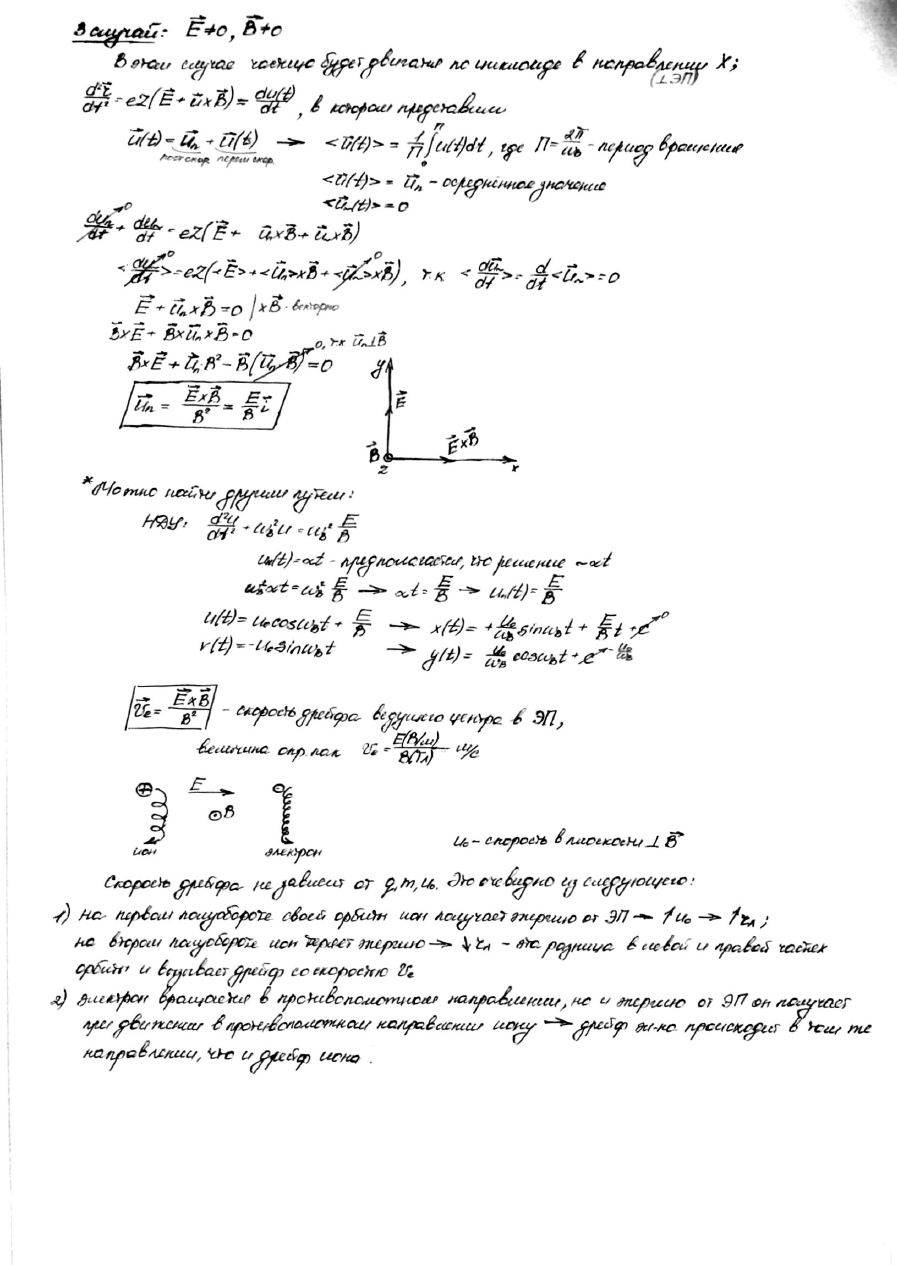 3 случай: E⃗≠0, B⃗≠0
В этом случае частица будет двигаться по циклоиде в направлении X;
(⊥ЭП)
d²r⃗/dt² = eZ(E⃗ + u⃗×B⃗) = du(t)/dt, в котором представим
u⃗(t) = u⃗п + ũ(t) → <u⃗(t)> = 1/П ∫₀ᴾ u(t)dt, где П = 2π/ω_b - период вращения
пост скор. перем скор.
<u⃗(t)> = u⃗п - осреднённое значение
<u⃗~(t)> = 0
du⃗п/dt →0 + du~/dt = eZ(E⃗ + u⃗п×B⃗ + u⃗~×B⃗)
<du/dt> →0 = eZ(<E⃗> + <u⃗п>×B⃗ + <u⃗~>×B⃗ →0), т.к <du⃗~/dt> = d/dt <u⃗~> = 0
E⃗ + u⃗п×B⃗ = 0 | ×B⃗ - векторно
B⃗×E⃗ + B⃗×u⃗п×B⃗ = 0
B⃗×E⃗ + u⃗п·B² - B⃗(u⃗п·B⃗) = 0
0, т.к u⃗п⊥B⃗
u⃗п = E⃗×B⃗/B² = E/B i⃗
y
E⃗
B⃗
z
E⃗×B⃗
x
*Можно найти другим путем:
НДУ: d²u/dt² + ω_b²u = ω_b² E/B
uп(t) = αt - предполагается, что решение ~αt
ω_b²αt = ω_b² E/B → αt = E/B → uп(t) = E/B
u(t) = u₀cosω_bt + E/B → x(t) = + u₀/ω_b sinω_bt + E/B t + c →0
v(t) = -u₀sinω_bt → y(t) = u₀/ω_b cosω_bt + c → - u₀/ω_b
v⃗e = E⃗×B⃗/B² - скорость дрейфа ведущего центра в ЭП,
величина опр. как ve = E(В/м)/B(Тл) м/с
E
⊙B
ион
электрон
u₀ - скорость в плоскости ⊥ B⃗
Скорость дрейфа не зависит от q, m, u₀. Это очевидно из следующего:
1) на первом полуобороте своей орбиты ион получает энергию от ЭП → ↑u₀ → ↑rл;
на втором полуобороте ион теряет энергию → ↓rл - эта разница в левой и правой частях
орбиты и вызывает дрейф со скоростью ve
2) электрон вращается в противоположном направлении, но и энергию от ЭП он получает
при движении в противоположном направлении иону → дрейф эл-на происходит в том же
направлении, что и дрейф иона.